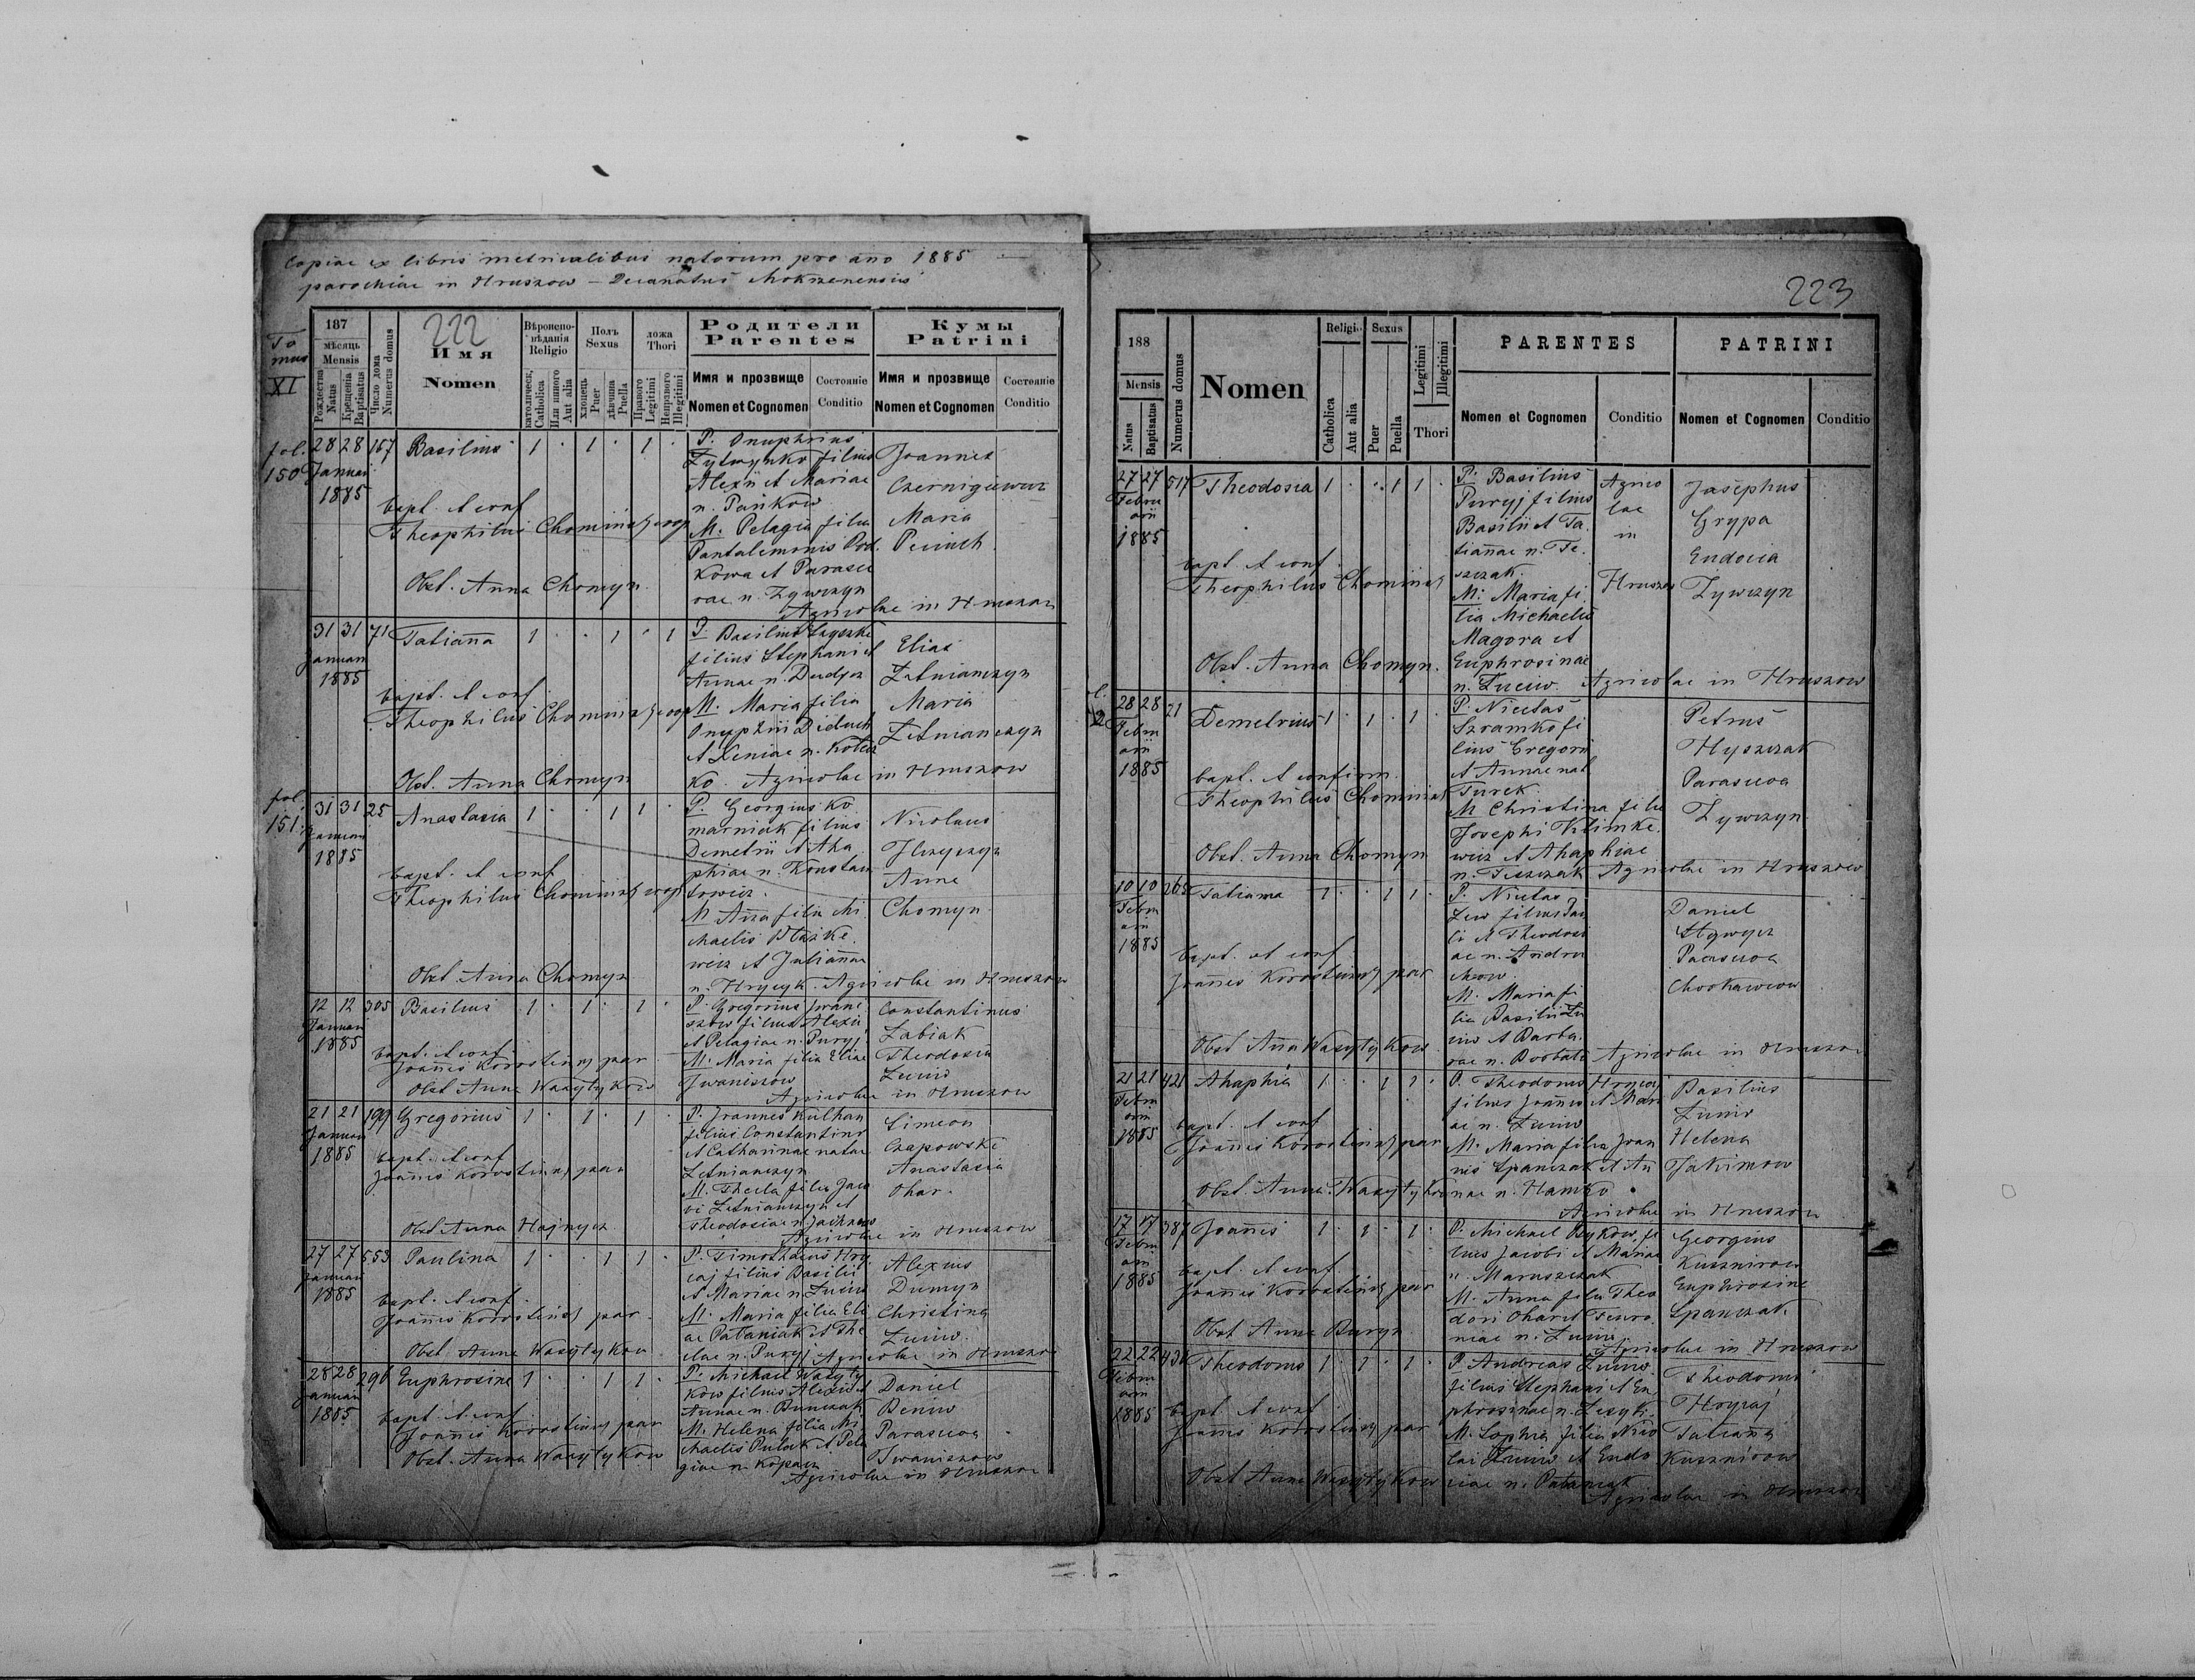 Copiae ex libris metricalibus natorum pro ano 1885
parochiae in Hruszow – Decanatus Mokrzanensis
222
To
mus
XI
187
мѣсяць
Mensis
Рождества
Natus
Крещенія
Baptisatus
Число дома
Numerus domus
Имя
Nomen
Вѣроиспо-
вѣданія
Religio
католическ.
Catholica
Или инного
Aut alia
Полъ
Sexus
хлопець
Puer
дѣвчина
Puella
ложа
Thori
Правого
Legitimi
Неправого
Illegitimi
Родители
Parentes
Имя и прозвище
Nomen et Cognomen
Состояніе
Conditio
Кумы
Patrini
Имя и прозвище
Nomen et Cognomen
Состояніе
Conditio
fol.
150
28 28 167 Basilius 1 · 1 · 1 ·
Januar
1885
bapt. et conf
Theophilus Chominski
Obst. Anna Chomyn
P. Onuphrius
Lytwynko filius
Alexii et Mariae
n. Pańkow
M. Pelagia filia
Pantalemonis Pod.
kowa et Parasce
vae n. Zywczyn
Agricolae in Hruszow
Joannes
Maria
31 31 71 Tatianna 1 · · 1 · 1
Januar
1885
bapt. et conf.
Theophilus Chominski
Obst. Anna Chomyn
P. Basilius
filius Stephani et
Annae n.
M. Maria filia
Onuphrii Diduch
et Xeniae n.
ko. Agricolae in Hruszow
Elias
Letnianczyn
Maria
Letnianczyn
fol.
151.
31 31 25 Anastasia 1 · · 1 1 ·
Januar
1885
bapt. et conf
Theophilus Chominski
Obst. Anna Chomyn
P. Georgius Ko
marniak filius
Demetrii et Aha
phiae n. Konstan
towicz.
M. Anna filia Mi
chaelis
wicz et Julianna
n. Hrycyk. Agricolae in Hruszow
Nicolaus
Anna
Chomyn
12 12 305 Basilius 1 · 1 · 1 ·
Januar
1885
bapt. et conf
Joannes Korostenski par
Obst. Anna Wasylykow
P. Gregorius Iwani
szow filius Alexii
et Pelagiae n. Puryj
M. Maria filia Eliae
Iwaniszow
Agricolae in Hruszow
Constantinus
Labiak
Theodosia
Luciw
21 21 199 Gregorius 1 · 1 · 1 ·
Januar
1885
bapt. et conf
Joannes Korostenski par
Obst. Anna Hajnycz
P. Joannes Kulhan
filius Constantini
et Catharinae natae
Letnianczyn
M. Thecla filia Jaco
bi Letnianczyn et
Theodosiae n.
Agricolae in Hruszow
Simeon
Czapowski
Anastasia
Ohar.
27 27 553 Paulina 1 · · 1 1 ·
Januar
1885
bapt. et conf.
Joannes Korostenski par.
Obst. Anna Wasylykow
P. Timotheus Hry
caj filius Basilii
et Mariae n. Luciw
M. Maria filia Eli
ae Pataniak et The
clae n. Puryj Agricolae in Hruszow
Alexius
Dumyn
Christina
Luciw.
28 28 296 Euphrosine 1 · · 1 1 ·
Januar
1885
bapt. et conf.
Joannes Korostenski par
Obst. Anna Wasylykow
P. Michael Wasyly
kow filius Alexii et
Annae n.
M. Helena filia Mi
chaelis et Pela
giae n. Kopacz
Agricolae in Hruszow
Daniel
Beniw
Parascwa
Iwaniszow
223
188
Mensis
Natus
Baptisatus
Numerus domus
Nomen
Religio
Catholica
Aut alia
Sexus
Puer
Puella
Legitimi
Illegitimi
Thori
PARENTES
Nomen et Cognomen
Conditio
PATRINI
Nomen et Cognomen
Conditio
27 27 517 Theodosia 1 · · 1 1 ·
Febru
arii
1885
bapt et conf.
Theophilus Chominski
Obst. Anna Chomyn.
P. Basilius
Puryj filius
Basilii et Ta.
tiannae n. Te.
szczak.
M. Maria fi.
lia Michaelis
Magora et
Euphrosinae
n. Luciw. Agricolae in Hruszow
Agrico
lae
in
Hruszow
Josephus
Grypa
Eudocia
Zywczyn
28 28 21 Demetrius 1 · 1 · 1 ·
Febru
arii
1885
bapt. et confirm.
Theophilus Chominski
Obst. Anna Chomyn
P. Nicetas
Szramko fi
lius Gregorii
et Annae nat
Turek.
M Christina filia
Josephi Klimke.
wicz et Ahaphiae
n. Teszczak Agricolae in Hruszow
Petrus
Hyszczak
Parascwa
Zywczyn.
10 10 265 Tatianna 1 · · 1 1 ·
Febru
arii
1885
bapt. et conf
Joannes Korostenski par
Obst Anna Wasylykow.
P. Nicetas
Lew filius Pau
li et Theodosi
ae n. Andru
chow.
M. Maria fi
lia Basilii Lu
ciw et Barba.
rae n. Agricolae in Hruszow
Daniel
Parascwa
21 21 421 Ahaphia 1 · · 1 1 ·
Febru
arii
1885
bapt. et conf
Joannes Korostenski par
Obst. Anna Wasylykow
P. Theodorus Hrycaj
filius Joannis et Mari
ae n. Luciw
M. Maria filia Joan
nis Spanczak et An
nae n. Hamko
Agricolae in Hruszow
Basilius
Luciw
Helena
Jakimow
17 17 387 Joannes 1 · 1 · 1 ·
Febru
arii
1885
bapt. et conf
Joannes Korostenski par
Obst Anna Buryn
P. Michael fi
lius Jacobi et Mariae
n. Maruszczak
M. Anna filia Theo
dori Ohar et Feuro.
niae n. Luciw
Agricolae in Hruszow
Georgius
Kusznirow
Euphrosine
Spanczak.
22 22 Theodorus 1 · 1 · 1 ·
Febru
arii
1885
bapt. et conf.
Joannes Korostenski par
Obst Anna Wasylykow
P. Andreas Luciw
filius Stephani et Eu
phrosinae n.
M. Sophia filia Nico
lai Luciw et Eudo
ciae n. Pataniak
Agricolae in Hruszow
Theodorus
Hrycaj
Tatianna
Kusznirow